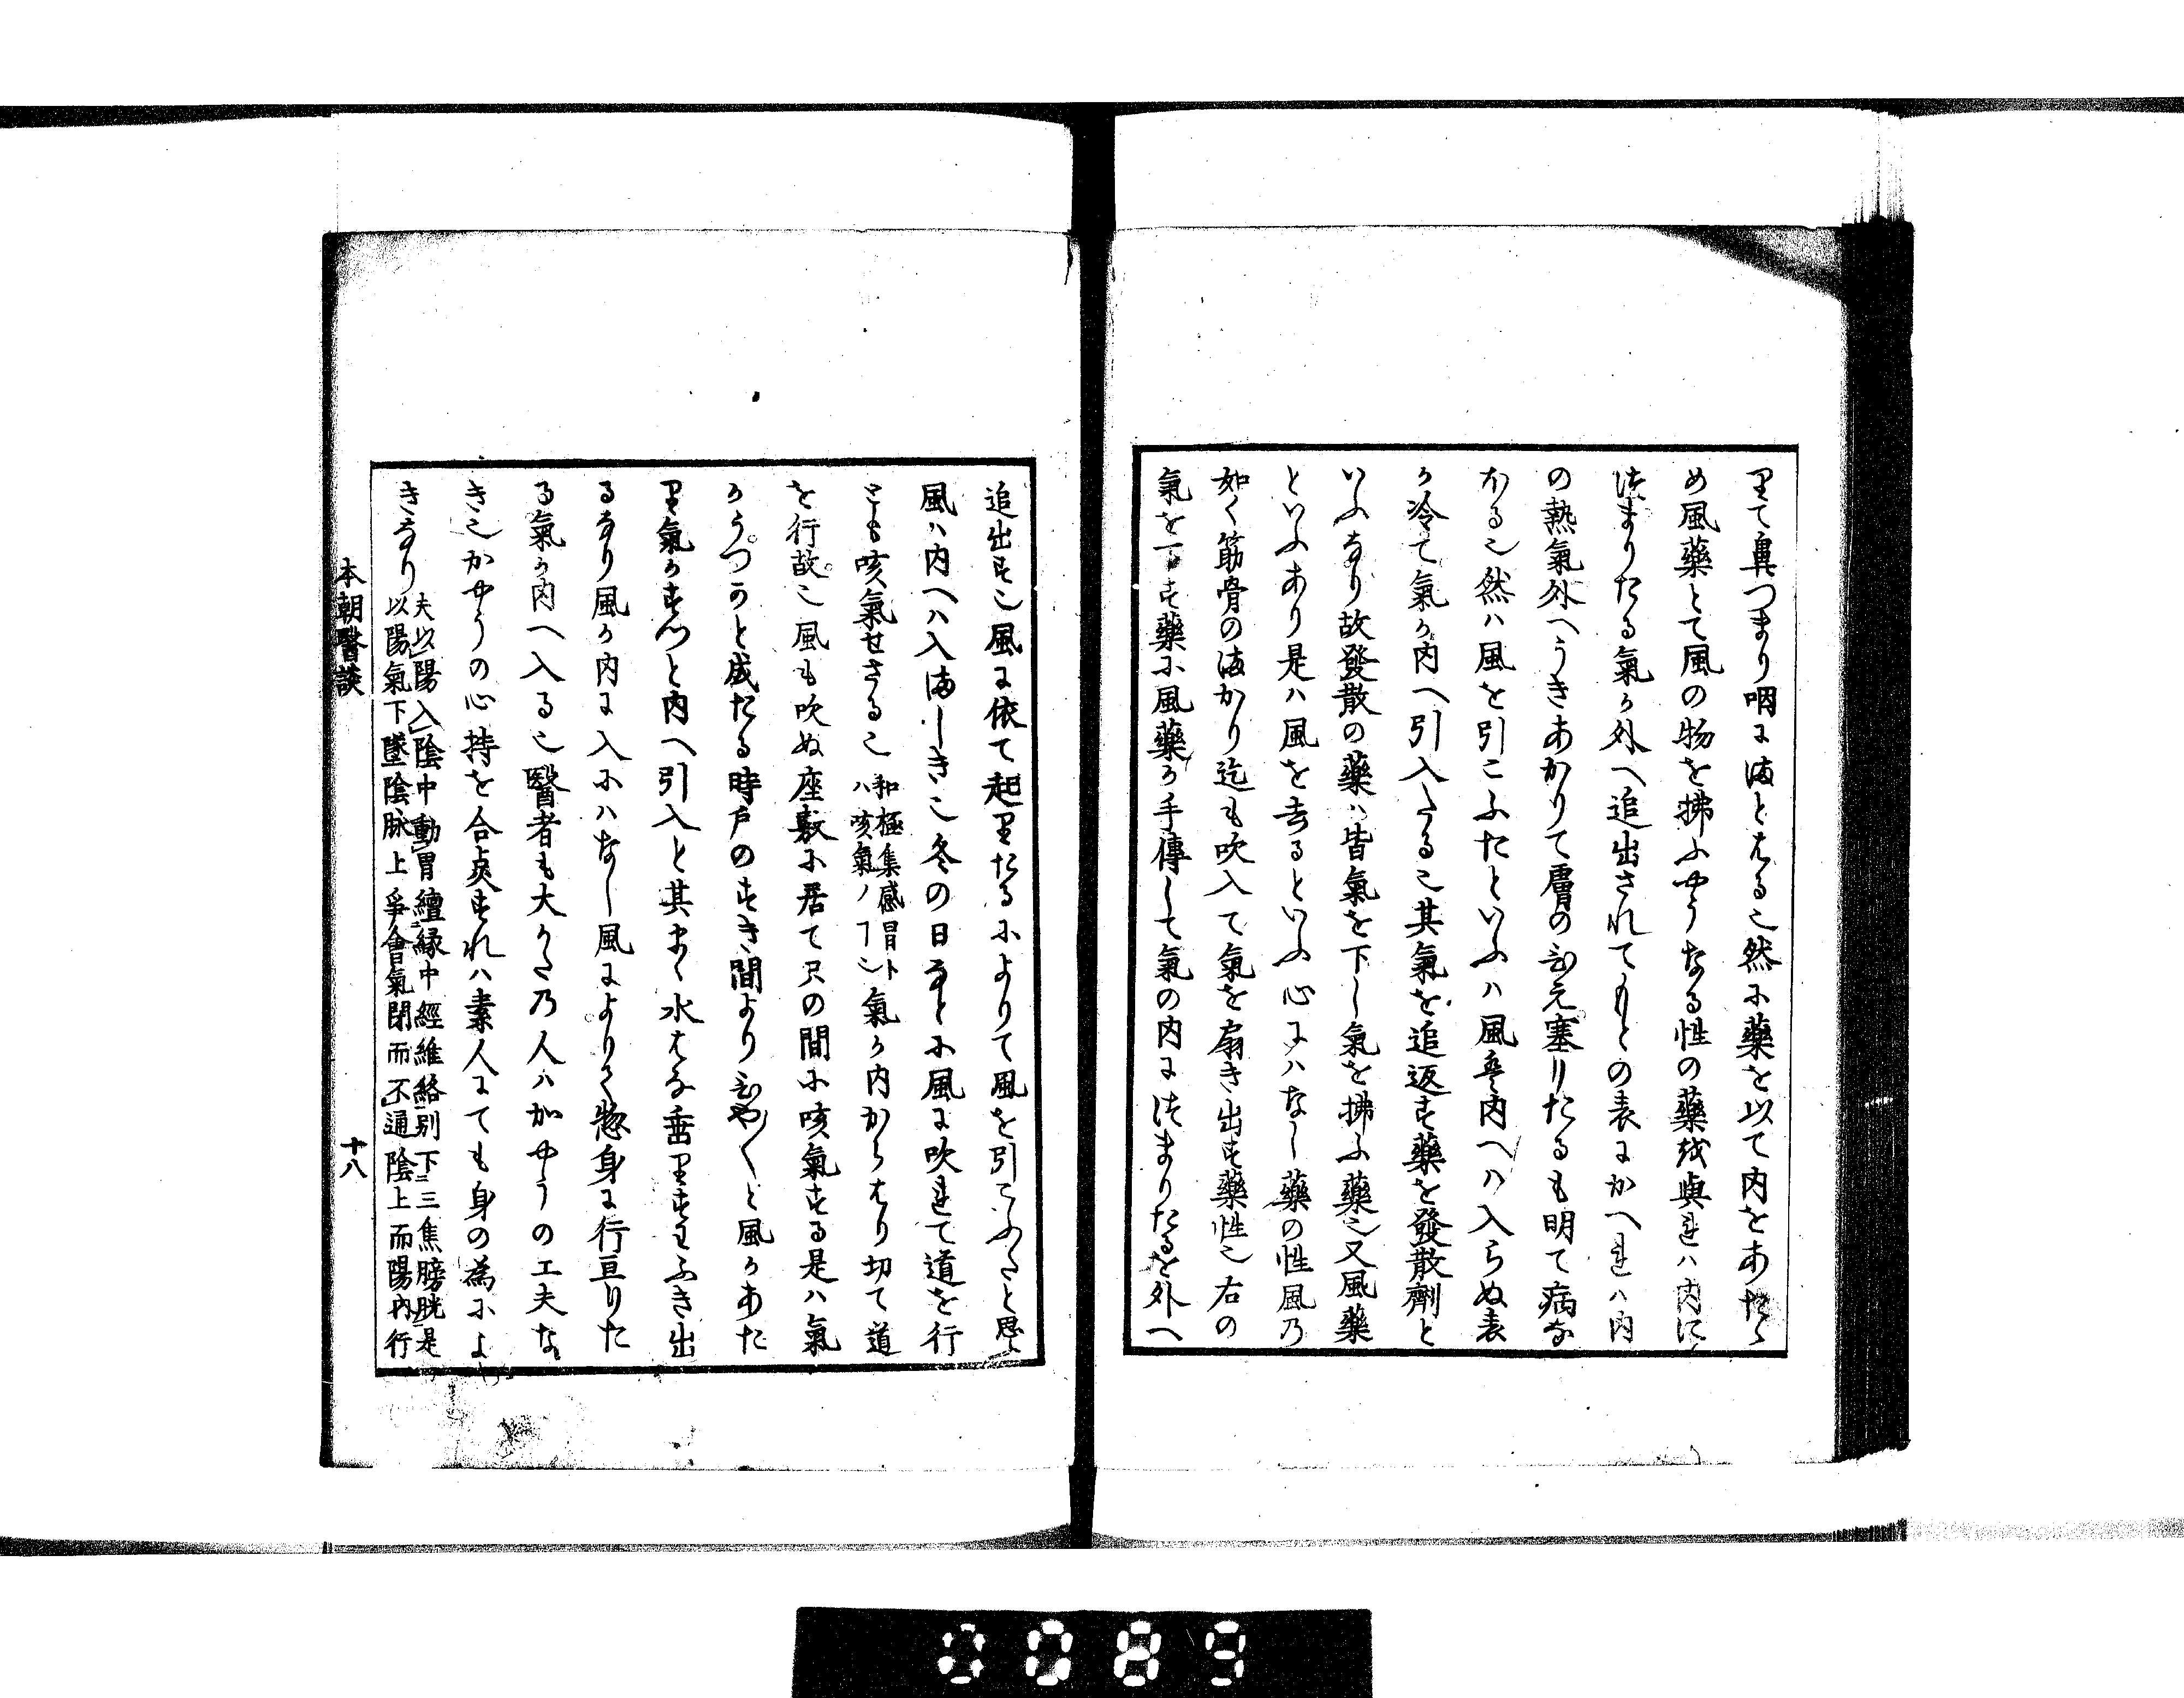 里て鼻つまり咽よ海とはる也然小藥を以て内をあたゝ
め風藥とて風の物を拂ふやうなる性の藥越與連ハ内に
津まりたる氣か外へ追出されてもとの表よかへ連ハ内
の熱氣外へうきあかりて膚の元塞りたるも明て病な
ほる也然ハ風を引こふたといふハ風ハ内へハ入らぬ表
か冷て氣か内へ引入たる也其氣を追返す藥を發散劑と
いふなり故發散の藥ハ皆氣を下し氣を拂ふ藥也又風藥
といふあり是ハ風を去るといふ心よハなし藥の性風乃
如く筋骨の海かり迄も吹入て氣を扇き出す藥性也右の
氣を下す藥小風藥か手傳して氣の内よ津まりたるを外へ
追出す也風よ依て起里たる小よりて風を引こふたと思へ
風ハ内へハ入海しき也冬の日なと小風よ吹連て道を行
とも咳氣せさる也 和極集感冒ト
ハ咳氣ノヿ也 氣か内からはり切て道
を行故也風も吹ぬ座敷小居て只の間小咳氣する是ハ氣
かうつかと成たる時戸のすき間よりひや〱と風かあた
里氣かすつと内へ引入と其まゝ水はな垂里すゝふき出
るなり風か内よ入小ハなし風によりて惣身よ行亘りた
る氣か内へ入る也醫者も大かた乃人ハかやうの工夫な
き也かやうの心持を合点すれハ素人よても身の為小よ
きなり 夫以陽入陰中動胃繵縁中經維絡別下三焦膀胱是
以陽氣下墜陰脉上爭會氣閉而不通陰上而陽内行
本朝醫談
十八
0089